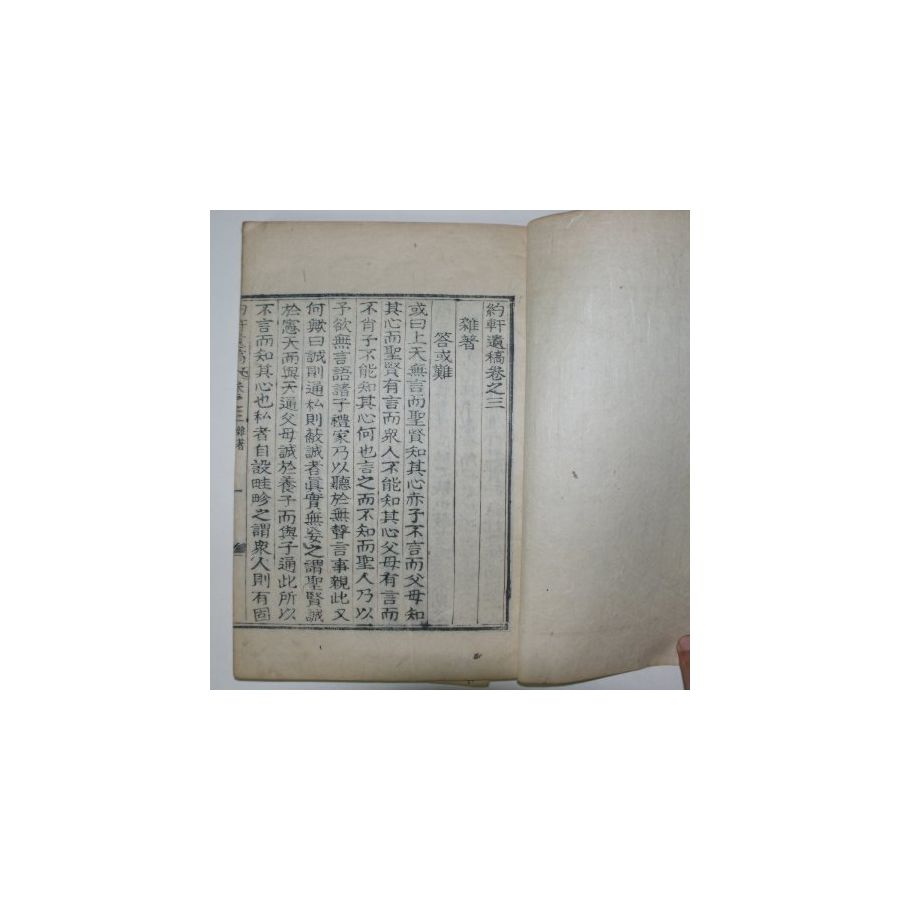 約軒遺稿卷之三
雜著
答或難
或曰上天無言而聖賢知其心亦子不言而父母知
其心而聖賢有言而衆人不能知其心父母有言而
不肖子不能知其心何也言之而不知而聖人乃以
予欲無言語諸子禮家乃以聽於無聲言事親此又
何歟曰誠則通私則蔽誠者眞實無妄之謂聖賢誠
於憲天而與天通父母誠於養子而與子通此所以
不言而知其心也私者自設畦畛之謂衆人則有固
卷之三 雜著